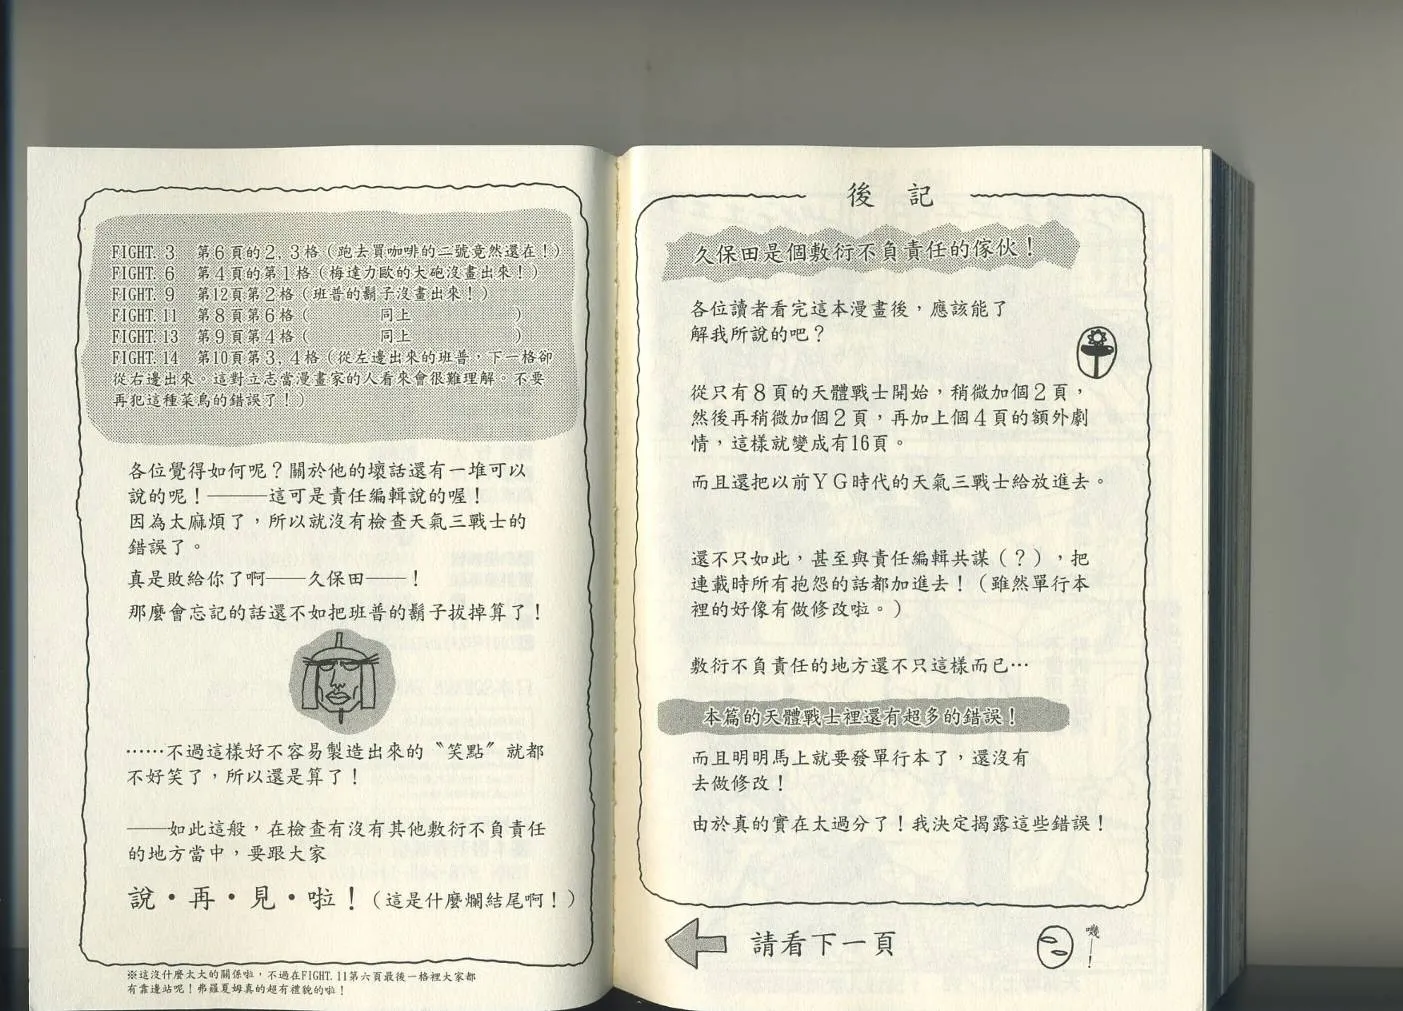 後 記
久保田是個敷衍不負責任的傢伙！
各位讀者看完這本漫畫後，應該能了
解我所說的吧？
從只有8頁的天體戰士開始，稍微加個2頁，
然後再稍微加個2頁，再加上個4頁的額外劇
情，這樣就變成有16頁。
而且還把以前YG時代的天氣三戰士給放進去。
還不只如此，甚至與責任編輯共謀（？），把
連載時所有抱怨的話都加進去！（雖然單行本
裡的好像有做修改啦。）
敷衍不負責任的地方還不只這樣而已…
本篇的天體戰士裡還有超多的錯誤！
而且明明馬上就要發單行本了，還沒有
去做修改！
由於真的實在太過分了！我決定揭露這些錯誤！
請看下一頁
嘰——！
FIGHT. 3 第6頁的2, 3格（跑去買咖啡的二號竟然還在！）
FIGHT. 6 第4頁的第1格（梅達力歐的大砲沒畫出來！）
FIGHT. 9 第12頁第2格（班普的鬍子沒畫出來！）
FIGHT. 11 第8頁第6格（ 同上 ）
FIGHT. 13 第9頁第4格（ 同上 ）
FIGHT. 14 第10頁第3, 4格（從左邊出來的班普，下一格卻
從右邊出來。這對立志當漫畫家的人看來會很難理解。不要
再犯這種菜鳥的錯誤了！）
各位覺得如何呢？關於他的壞話還有一堆可以
說的呢！———這可是責任編輯說的喔！
因為太麻煩了，所以就沒有檢查天氣三戰士的
錯誤了。
真是敗給你了啊——久保田——！
那麼會忘記的話還不如把班普的鬍子拔掉算了！
……不過這樣好不容易製造出來的〝笑點〞就都
不好笑了，所以還是算了！
——如此這般，在檢查有沒有其他敷衍不負責任
的地方當中，要跟大家
說・再・見・啦！（這是什麼爛結尾啊！）
※這沒什麼太大的關係啦，不過在FIGHT. 11第六頁最後一格裡大家都
有靠邊站呢！弗羅夏姆真的超有禮貌的啦！